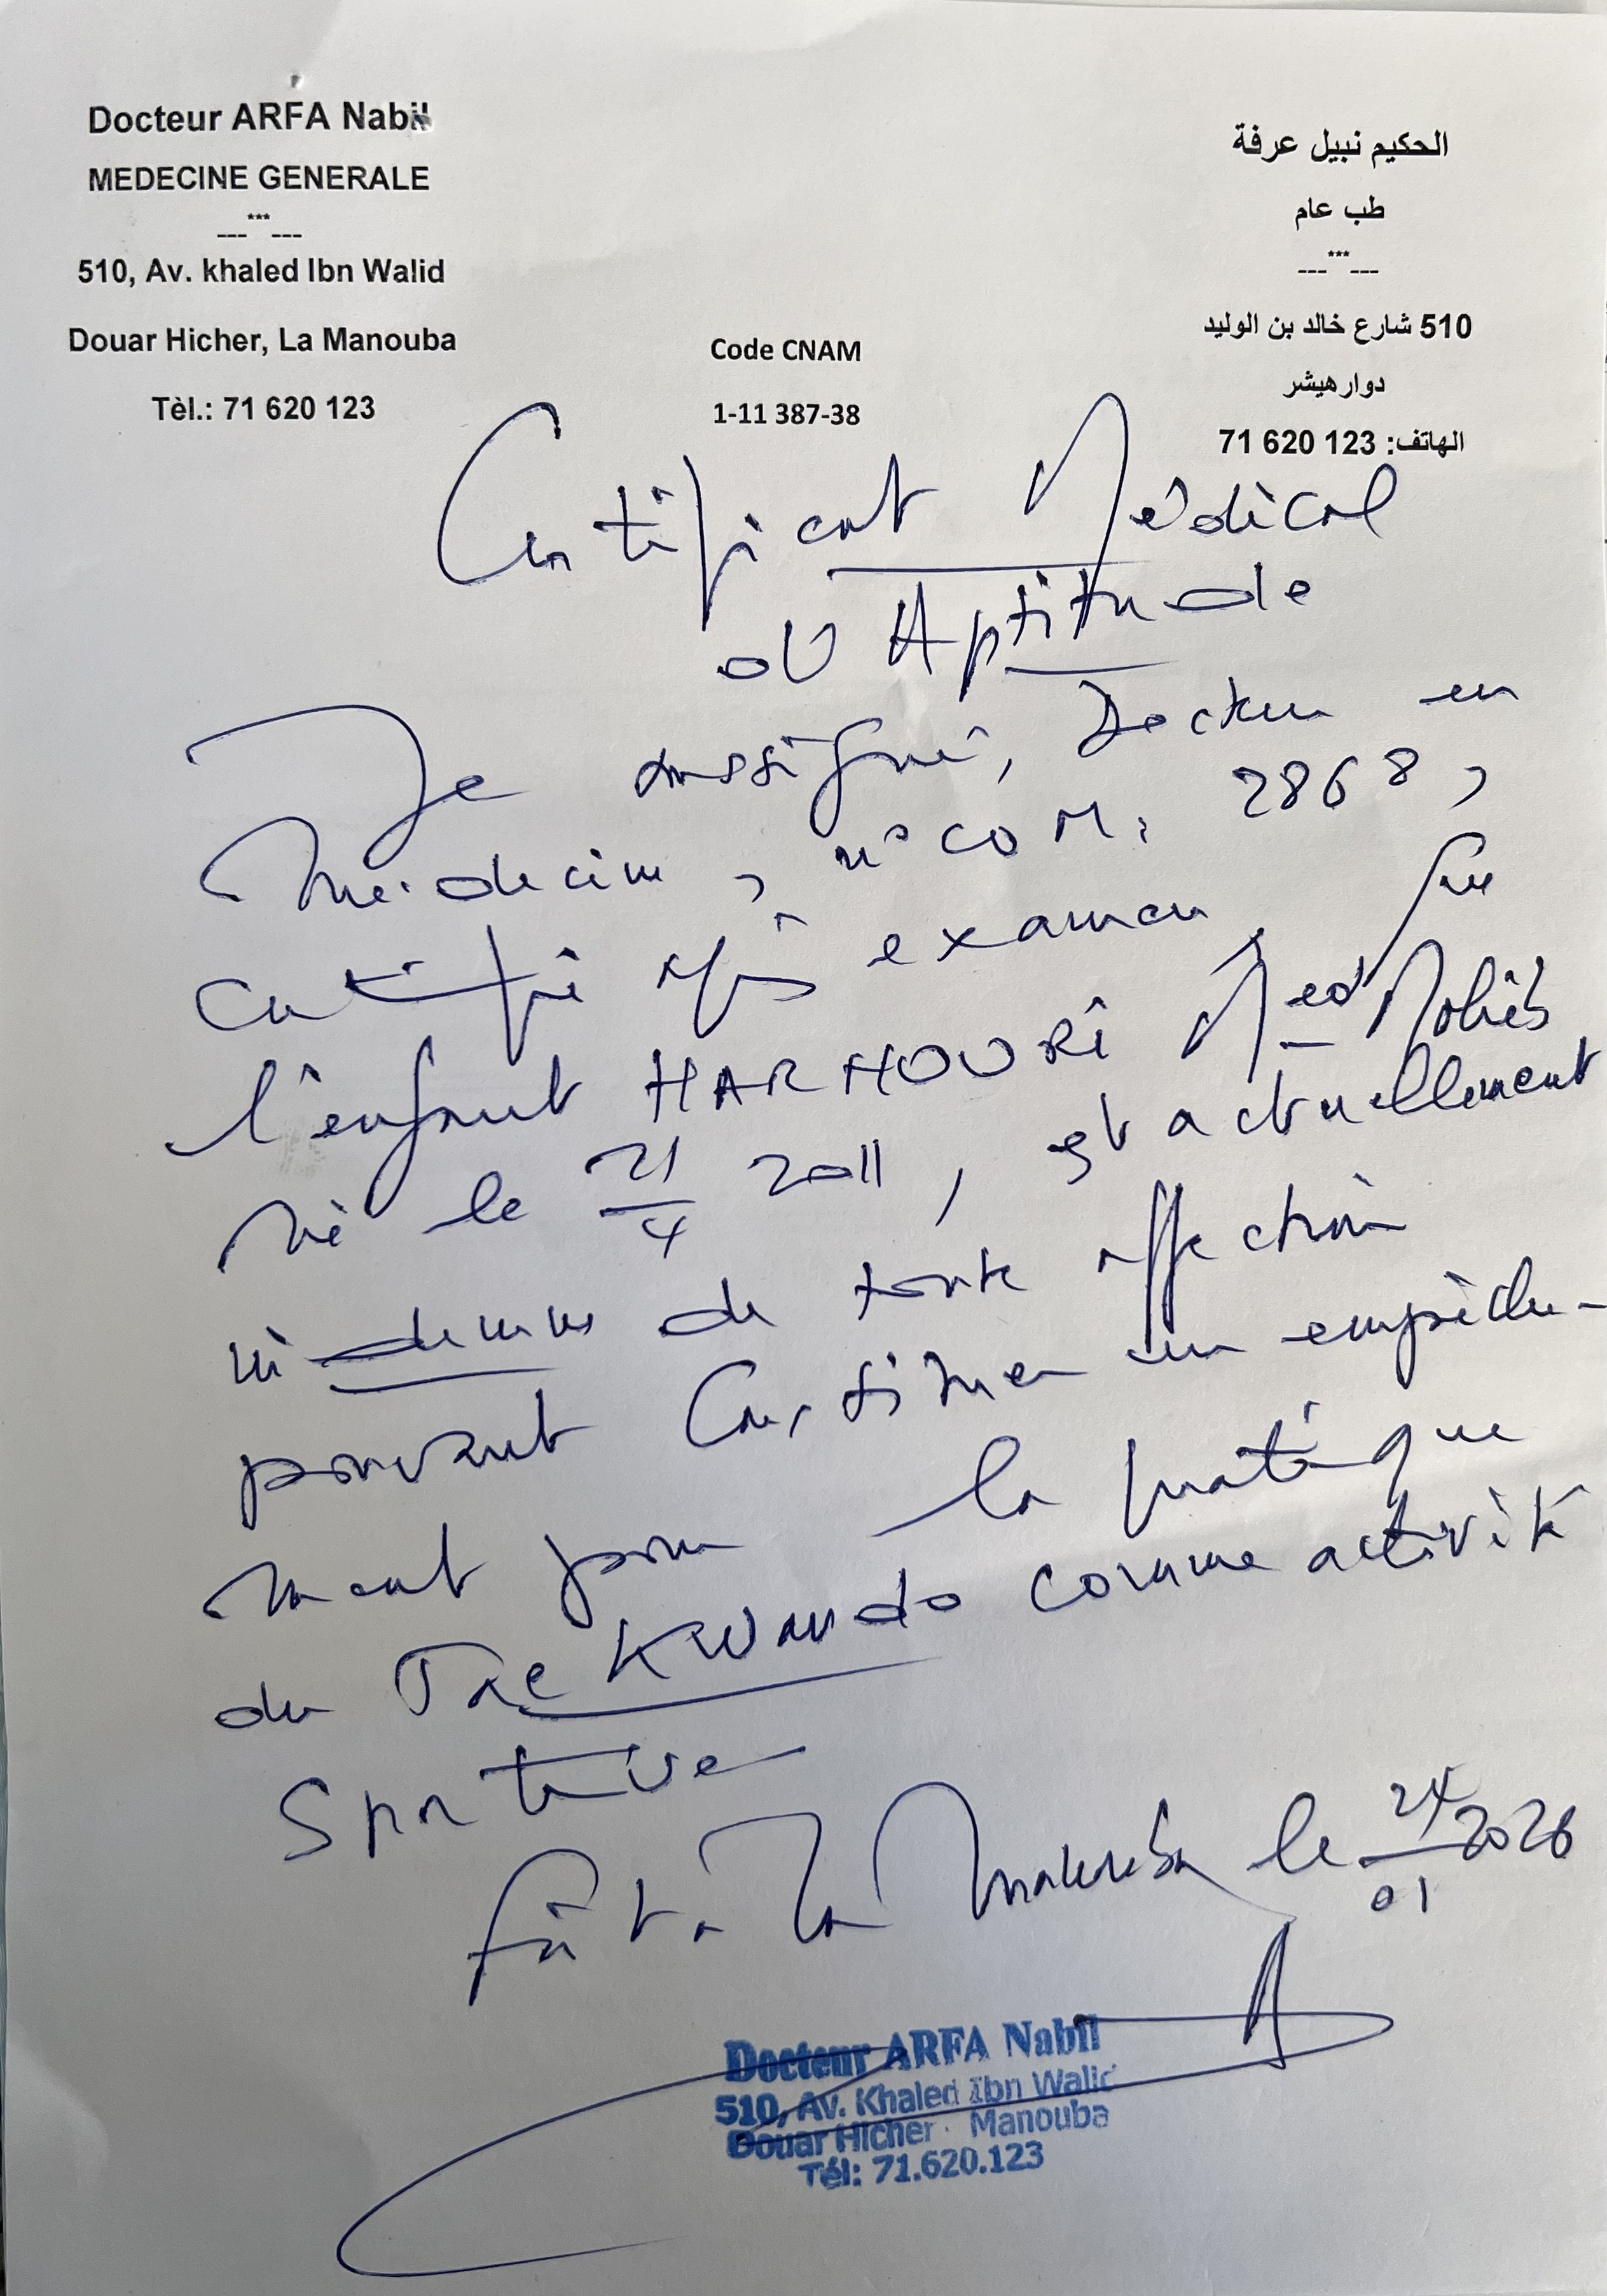 Docteur ARFA Nabil
MEDECINE GENERALE
---***---
510, Av. khaled Ibn Walid
Douar Hicher, La Manouba
Tèl.: 71 620 123
Code CNAM
1-11 387-38
الحكيم نبيل عرفة
طب عام
---***---
510 شارع خالد بن الوليد
دوار هيشر
الهاتف: 123 620 71
Certificat Médical
d'Aptitude
Je soussigné, Docteur en
Médecine, n° COM: 2868,
Certifie après examen que
l'enfant HARMOURI Med
né le 21/4 2011, est actuellement
indemne de toute affection
pouvant Constituer un empêche-
ment pour la pratique
du TaeKwondo comme activité
Sportive
fait à La Manouba le 24/01 2026
Docteur ARFA Nabil
510, Av. Khaled Ibn Walid
Douar Hicher - Manouba
Tél: 71.620.123